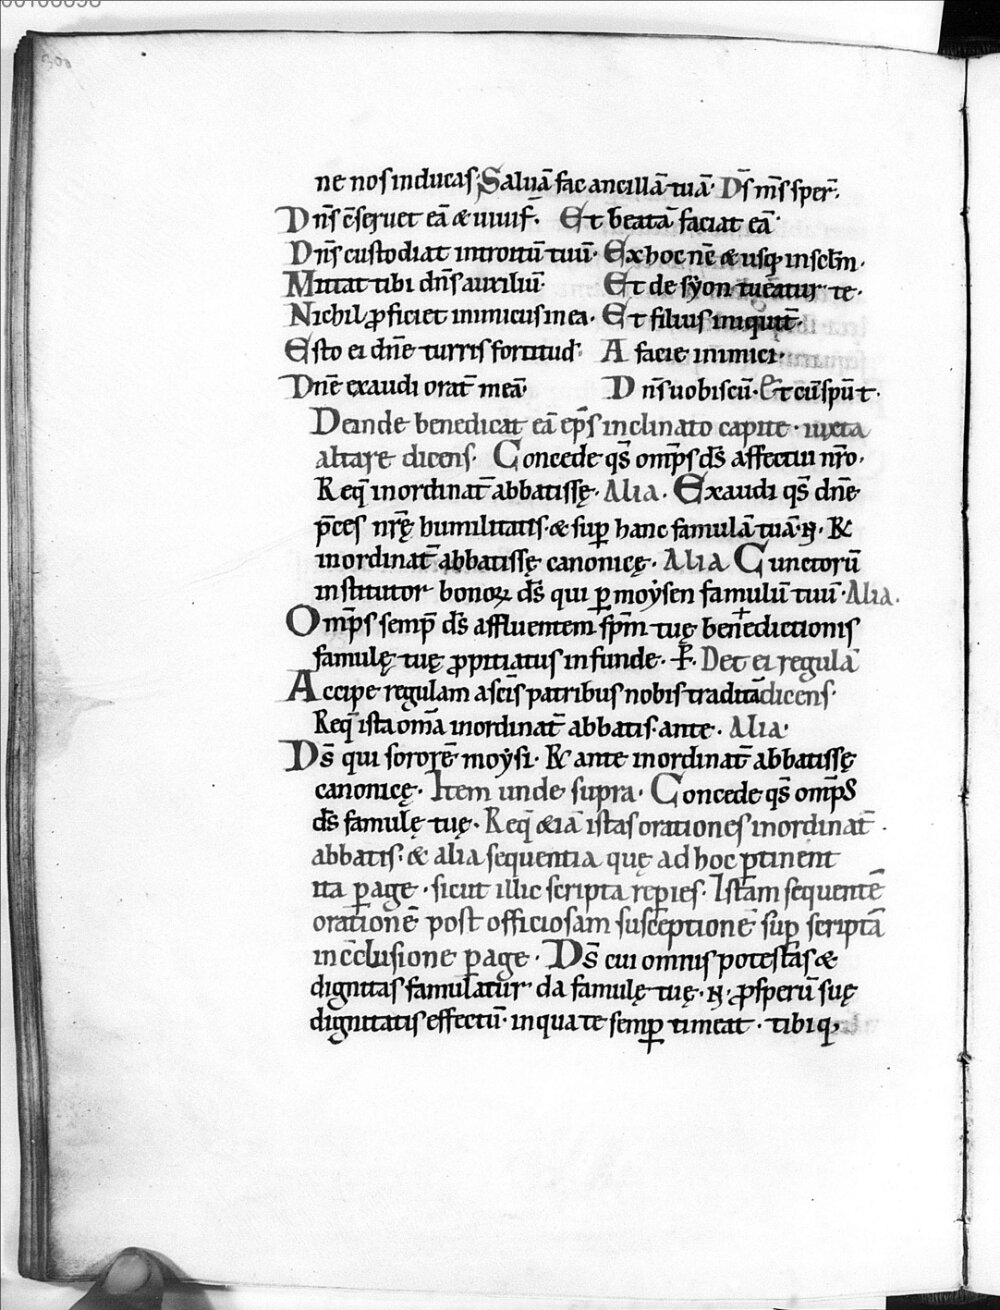 300
ne nos inducas; Saluā fac ancillā tuā· Ds̄ m̄s sper̄.
Dn̄s c̄seruet eā & uiuif̄. Et beatā faciat eā·
Dn̄s custodiat introitū tuū· Ex hoc n̄c & usq; in sclm̄.
Mittat tibi dn̄s auxiliū· Et de syon tueatur te·
Nichil ꝓficiet inimicus in ea· Et filius iniquit̄.
Esto ei dn̄e turris fortitud· A facie inimici·
Dn̄e exaudi orat̄ meā· Dn̄s uobiscū· Et cū sp̄u t·
Deinde benedicat eā ep̄s inclinato capite · iuxta
altare dicens· Concede qs̄ omp̄s ds̄ affectui nr̄o·
Req̄ in ordinat̄ abbatissę· Alia· Exaudi qs̄ dn̄e
p̄ces nr̄ę humilitatis· & suꝑ hanc famulā tuā· N· R&
in ordinat̄ abbatissę canonicę· Alia Cunctorū
institutor bonoꝝ ds̄ qui ꝑ moẏsen famulū tuū· Alia·
Omp̄s semp̄ ds̄ affluentem sp̄m tuę benedictionis
famulę tuę ꝓpitiatus infunde· P̄· Det ei regulā
Accipe regulam a sc̄is patribus nobis traditā dicens·
Req̄ ista om̄a in ordinat̄ abbatis· ante· Alia·
Ds̄ qui sororē moẏsi· R& ante in ordinat̄ abbatissę
canonicę· Item unde supra· Concede qs̄ omp̄s
ds̄ famulę tuę· Req̄ &iā istas orationes in ordinat̄·
abbatis· & alia sequentia quę ad hoc ꝑtinent
ita ꝑage· sicut illic scripta repies· Istam sequentē
orationē post officiosam susceptionē suꝑ scriptā
in c̄clusione ꝑage· Ds̄ cui omnis potestas &
dignitas famulatur da famulę tuę· N· ꝓsperū suę
dignitatis effectū· in qua te semꝑ timeat· tibiq;